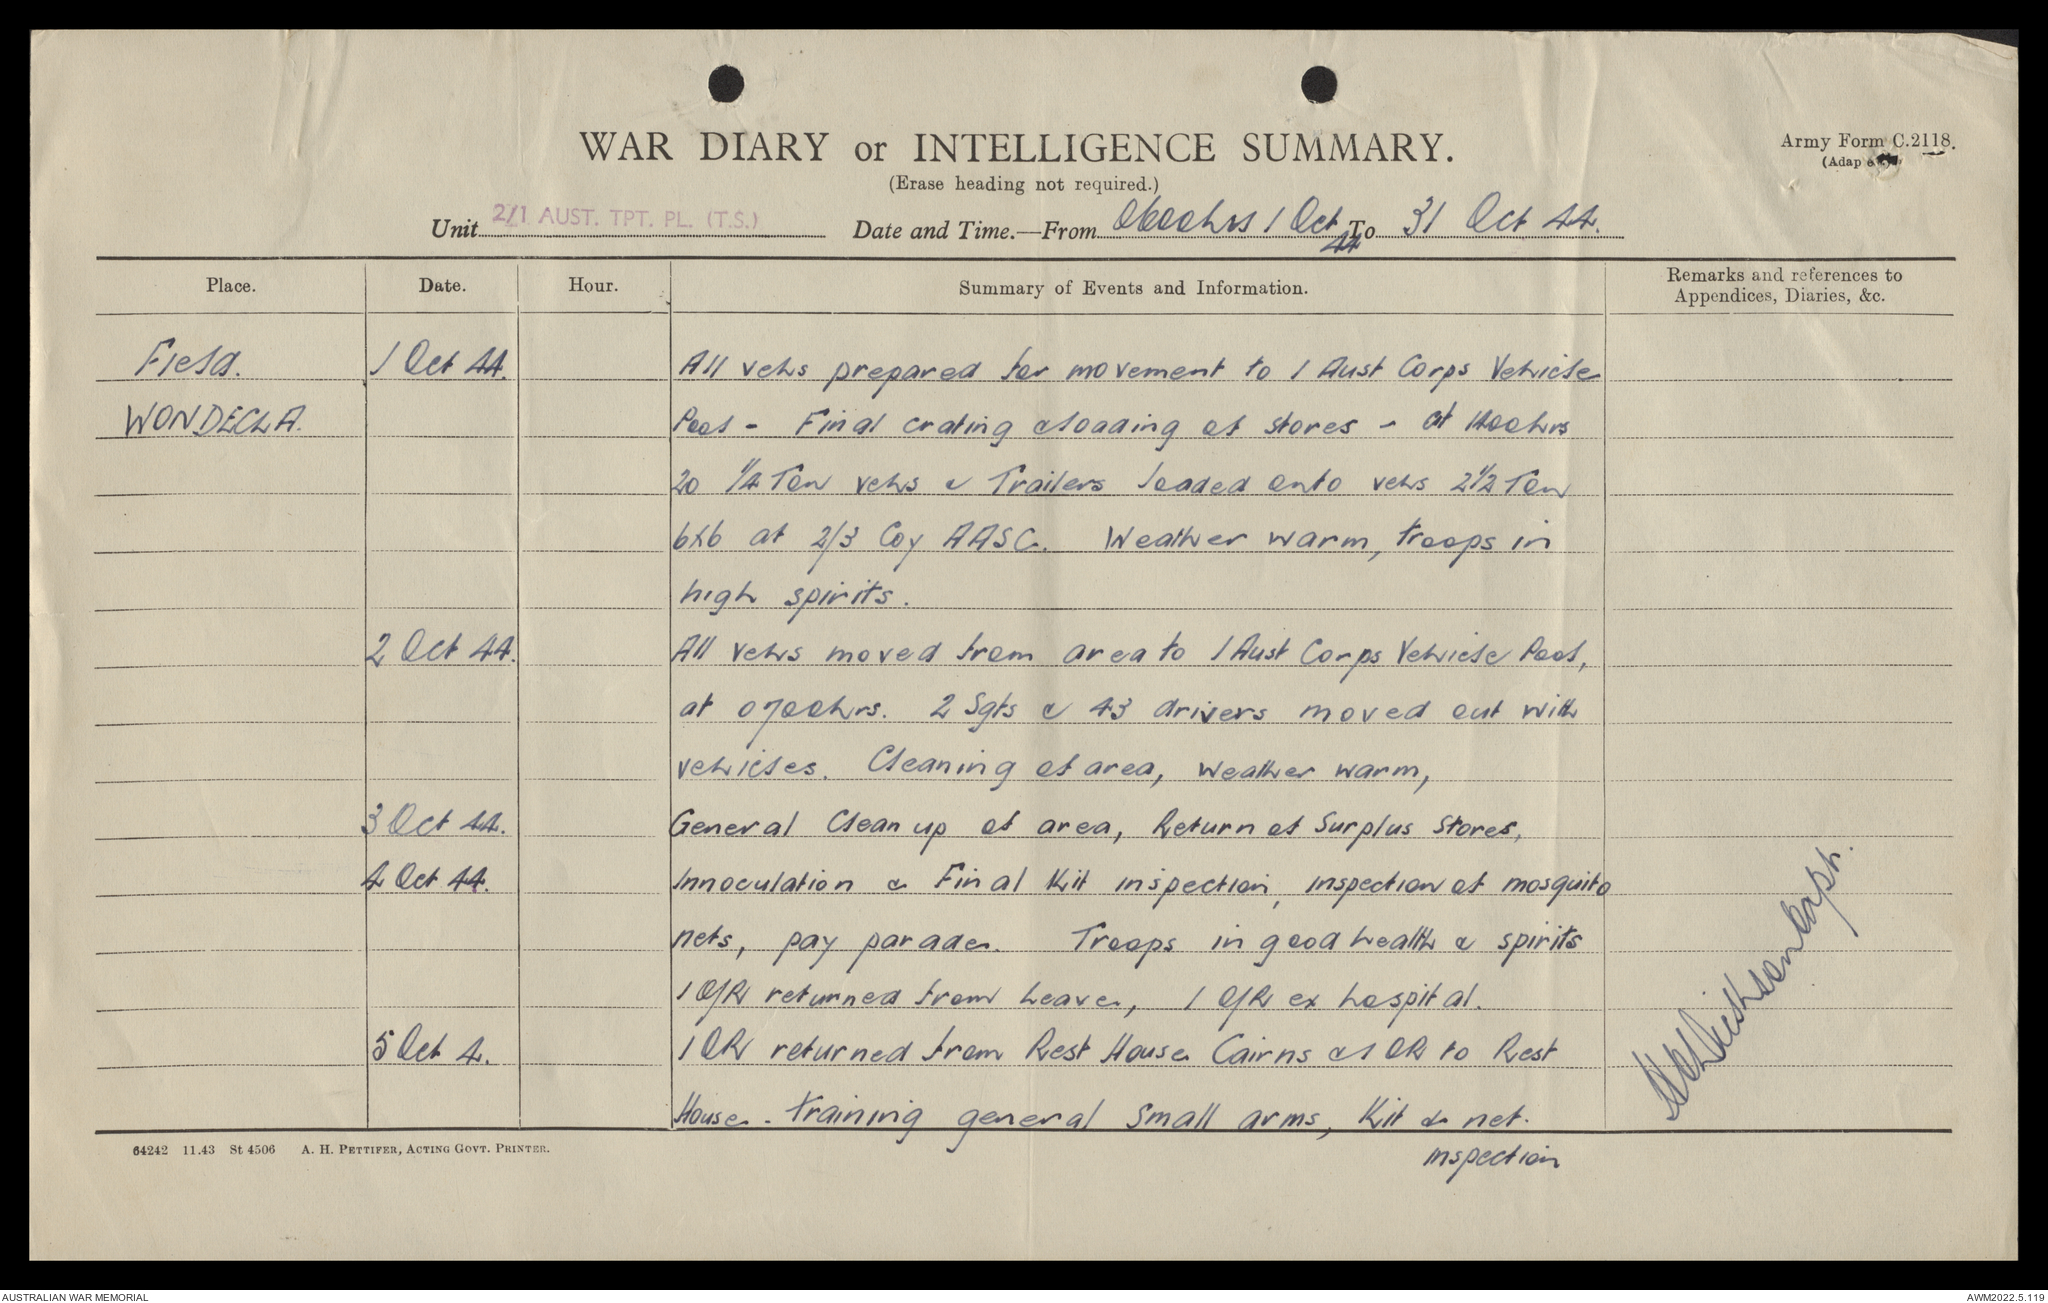 WAR DIARY or INTELLIGENCE SUMMARY.
Army Form C.2118.
(Adap
(Erase heading not required.)
Unit 2/1 AUST. TPT. PL. (T.S.) Date and Time.—From 0600hrs 1 Oct 44 To 31 Oct 44.
Place. Date. Hour. Summary of Events and Information. Remarks and references to
Appendices, Diaries, &c.
Field. 1 Oct 44. All vehs prepared for movement to 1 Aust Corps Vehicle
WONDECLA. Pool - Final crating & loading of stores - at 1400hrs
20 1/4 Ton vehs & Trailers loaded onto vehs 2 1/2 Ton
6x6 at 2/3 Coy AASC. Weather warm, troops in
high spirits.
2 Oct 44. All vehs moved from area to 1 Aust Corps Vehicle Pool,
at 0700hrs. 2 Sgts & 43 drivers moved out with
vehicles. Cleaning of area, weather warm,
3 Oct 44. General Clean up of area, Return of Surplus Stores,
4 Oct 44. Innoculation & Final Kit inspection, inspection of mosquito
nets, pay parade. Troops in good health & spirits
1 O/R returned from Leave, 1 O/R ex hospital.
5 Oct 4. 1 OR returned from Rest House Cairns & 1 OR to Rest
House. Training general Small arms, Kit & net.
inspection
Capt.
64242 11.43 St 4506 A. H. PETTIFER, ACTING GOVT. PRINTER.
AUSTRALIAN WAR MEMORIAL
AWM2022.5.119